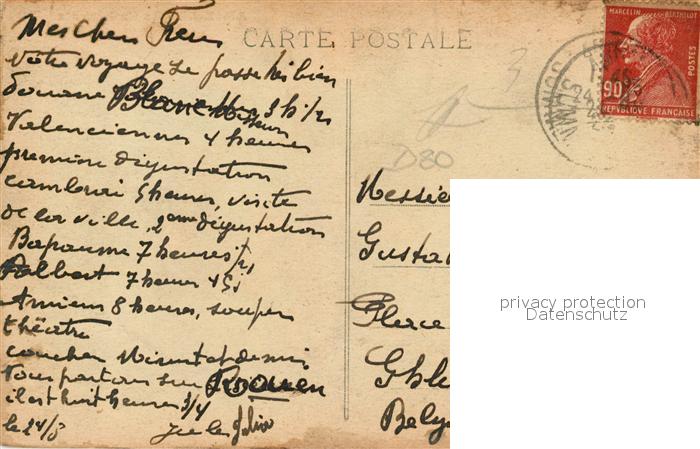 CARTE POSTALE
MARCELIN BERTHELOT
POSTES
90
REPUBLIQUE FRANÇAISE
AMIENS
SOMME
D80
Mes Chers Freres
Votre voyage se passe très bien
Douane Blanc Misseron 3 h 1/2
Valenciennes 4 heures
première dégustation
Cambrai 5 heures, visite
de la ville, 2eme dégustation
Bapaume 7 heures
Albert 7 heures 45
Amiens 8 heures, souper
théatre
coucher Minuit et demi,
Nous partons sur Rouen
il est huit heures 3/4
le 24/5
Jules
Messie
Gusta
Place
Ghl
Belg
privacy protection
Datenschutz